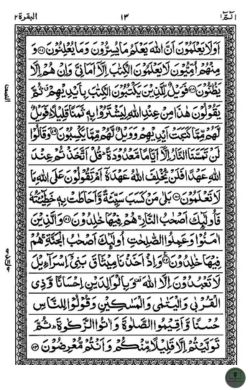 الٓمّٓ ١ ١٣ البقرة ٢
اَوَلَا يَعْلَمُوْنَ اَنَّ اللّٰهَ يَعْلَمُ مَا يُسِرُّوْنَ وَمَا يُعْلِنُوْنَ۝ وَ
مِنْهُمْ اُمِّيُّوْنَ لَا يَعْلَمُوْنَ الْكِتٰبَ اِلَّاۤ اَمَانِيَّ وَاِنْ هُمْ اِلَّا
يَظُنُّوْنَ۝ فَوَيْلٌ لِّلَّذِيْنَ يَكْتُبُوْنَ الْكِتٰبَ بِاَيْدِيْهِمْ ثُمَّ
يَقُوْلُوْنَ هٰذَا مِنْ عِنْدِ اللّٰهِ لِيَشْتَرُوْا بِهٖ ثَمَنًا قَلِيْلًا فَوَيْلٌ
لَّهُمْ مِّمَّا كَتَبَتْ اَيْدِيْهِمْ وَوَيْلٌ لَّهُمْ مِّمَّا يَكْسِبُوْنَ۝ وَقَالُوْا
لَنْ تَمَسَّنَا النَّارُ اِلَّاۤ اَيَّامًا مَّعْدُوْدَةً قُلْ اَتَّخَذْتُمْ عِنْدَ
اللّٰهِ عَهْدًا فَلَنْ يُّخْلِفَ اللّٰهُ عَهْدَهٗۤ اَمْ تَقُوْلُوْنَ عَلَى اللّٰهِ مَا
لَا تَعْلَمُوْنَ۝ بَلٰى مَنْ كَسَبَ سَيِّئَةً وَّاَحَاطَتْ بِهٖ خَطِيْۤـَٔتُهٗ
فَاُولٰٓئِكَ اَصْحٰبُ النَّارِ هُمْ فِيْهَا خٰلِدُوْنَ۝ وَالَّذِيْنَ
اٰمَنُوْا وَعَمِلُوا الصّٰلِحٰتِ اُولٰٓئِكَ اَصْحٰبُ الْجَنَّةِ هُمْ
فِيْهَا خٰلِدُوْنَ۝ وَاِذْ اَخَذْنَا مِيْثَاقَ بَنِيْۤ اِسْرَآءِيْلَ
لَا تَعْبُدُوْنَ اِلَّا اللّٰهَ وَبِالْوَالِدَيْنِ اِحْسَانًا وَّذِي
الْقُرْبٰى وَالْيَتٰمٰى وَالْمَسٰكِيْنِ وَقُوْلُوْا لِلنَّاسِ
حُسْنًا وَّاَقِيْمُوا الصَّلٰوةَ وَاٰتُوا الزَّكٰوةَ ثُمَّ
تَوَلَّيْتُمْ اِلَّا قَلِيْلًا مِّنْكُمْ وَاَنْتُمْ مُّعْرِضُوْنَ۝